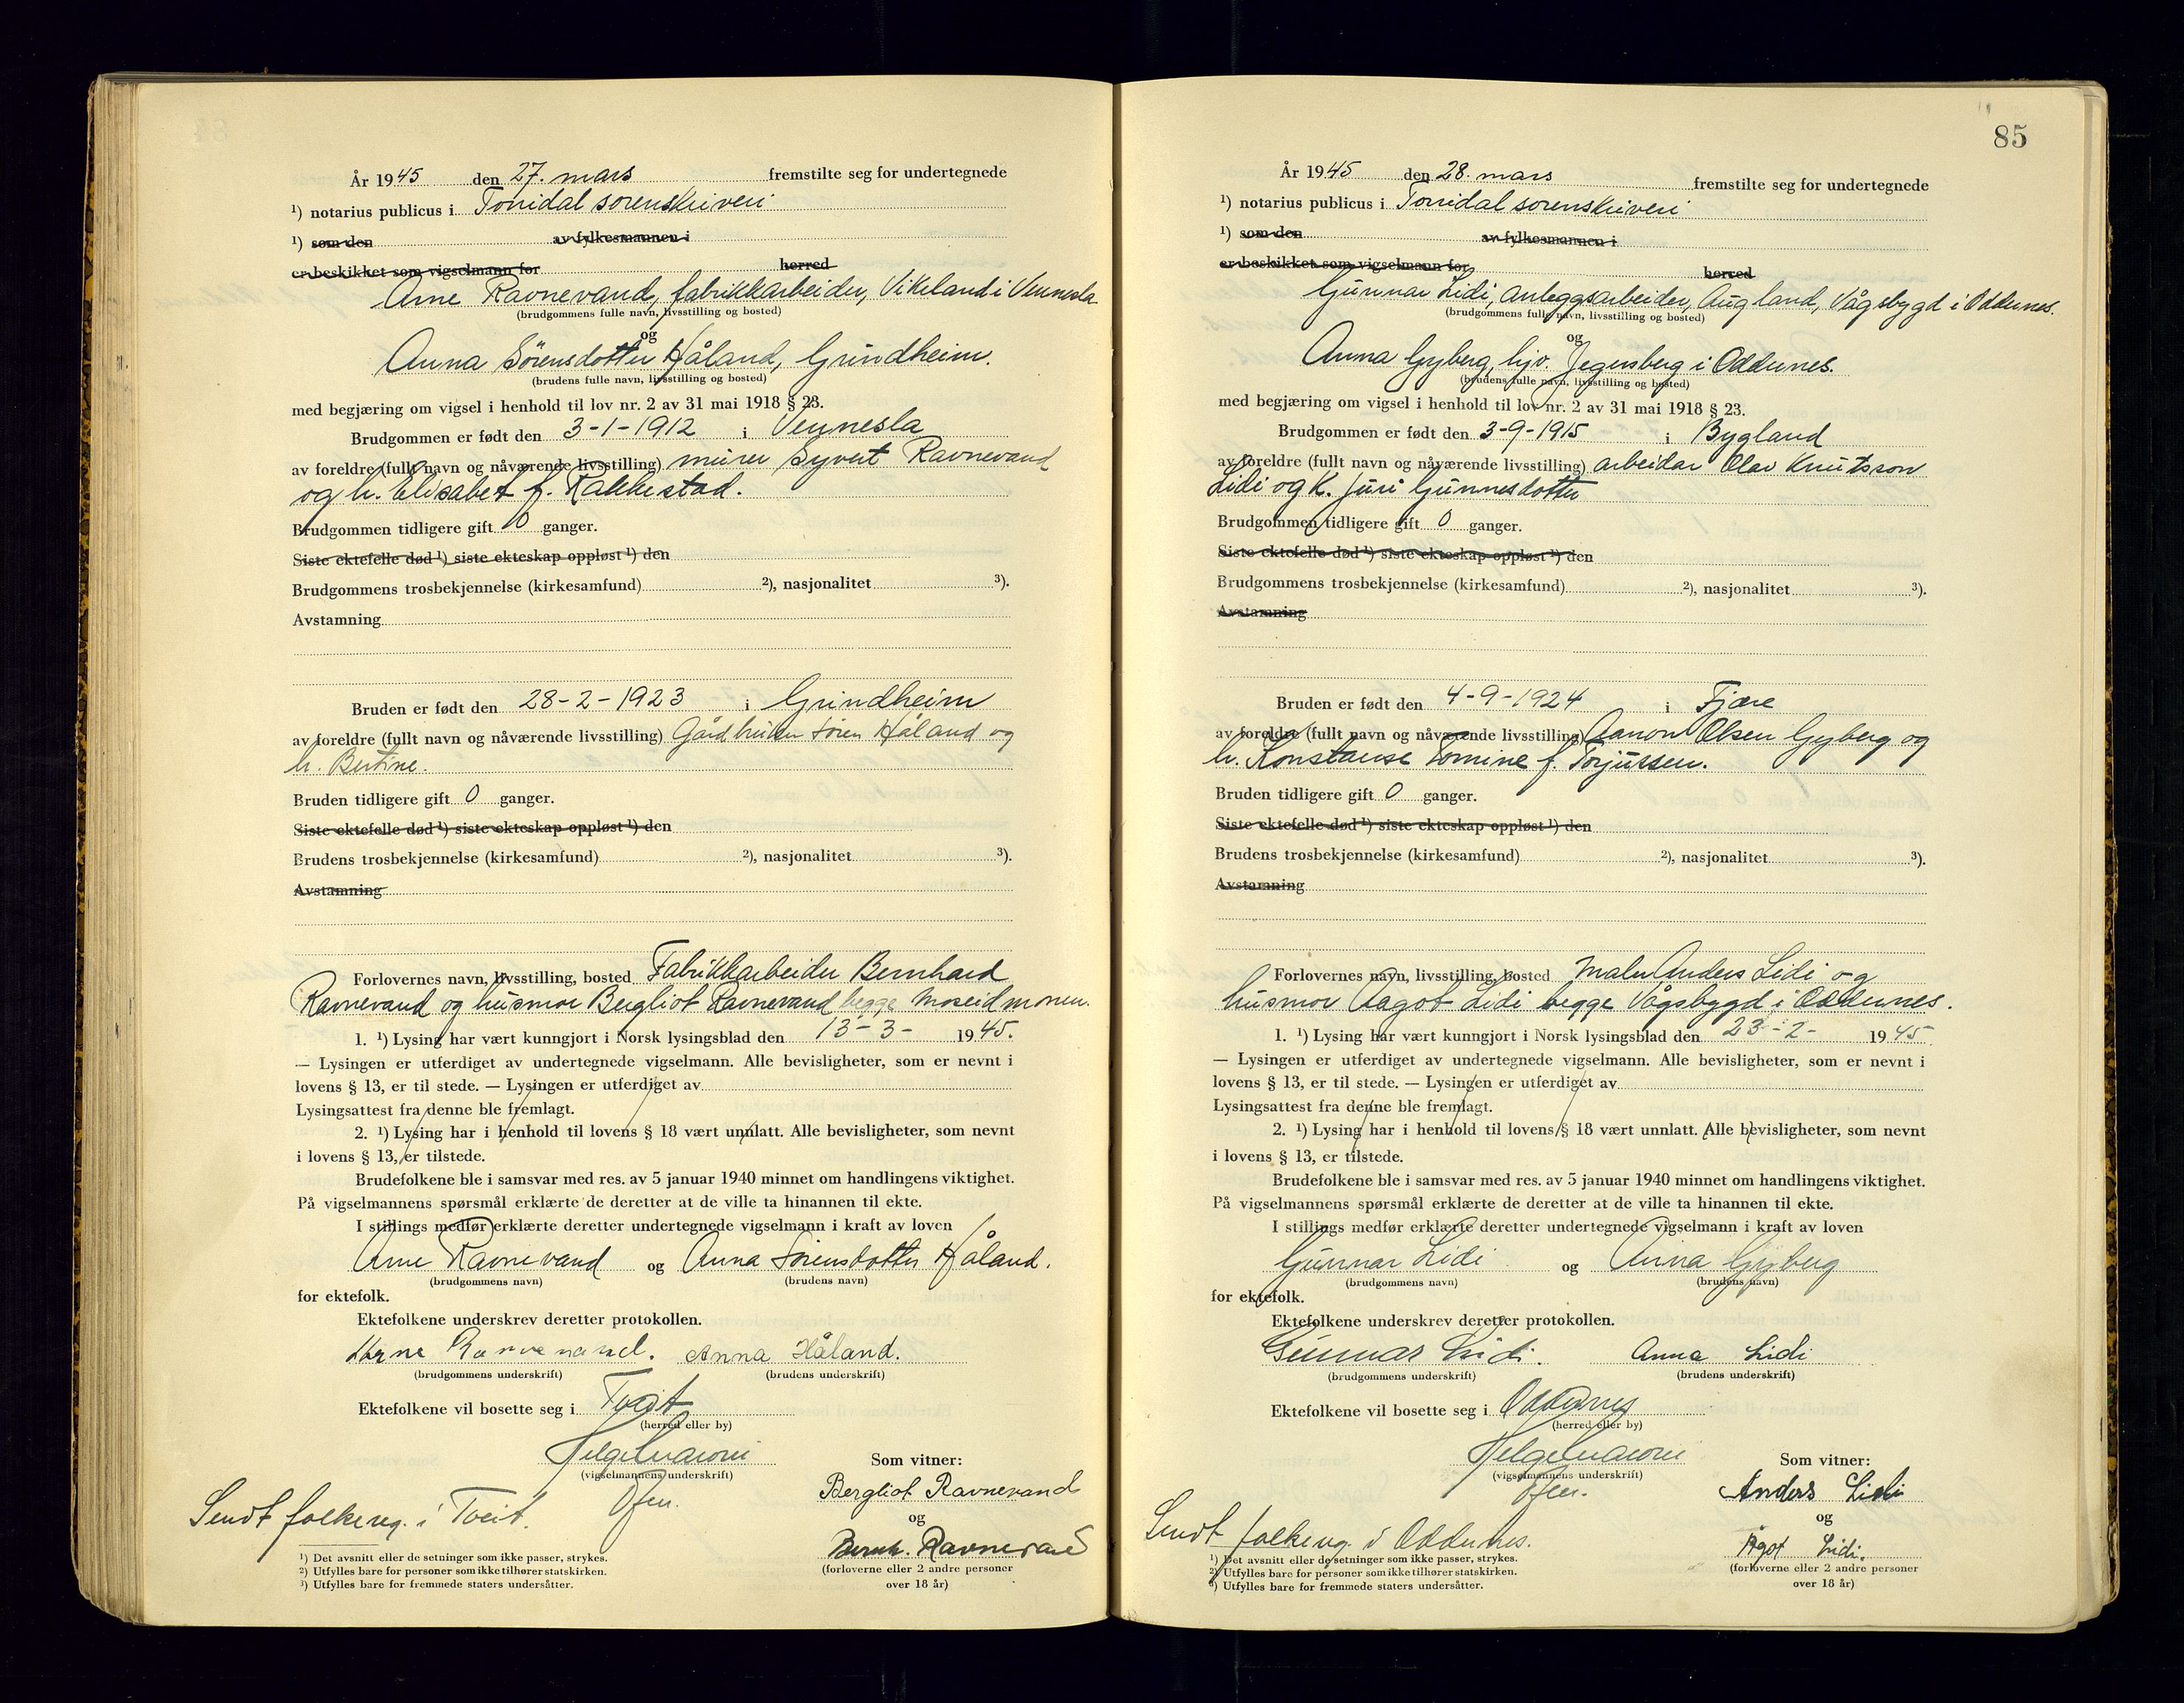 År 1945 den 27. mars fremstilte seg for undertegnede
¹) notarius publicus i Torridal sorenskriveri
¹) som den av fylkesmannen i
er beskikket som vigselmann for herred
Arne Ravnevand, fabrikkarbeider, Vikeland i Vennesla
(brudgommens fulle navn, livsstilling og bosted)
og
Anna Sörensdotter Håland, Grindheim.
(brudens fulle navn, livsstilling og bosted)
med begjæring om vigsel i henhold til lov nr. 2 av 31 mai 1918 § 23.
Brudgommen er født den 3-1-1912 i Vennesla
av foreldre (fullt navn og nåværende livsstilling) murer Syvert Ravnevand
og h. Elisabet f. Rakkestad.
Brudgommen tidligere gift 0 ganger.
Siste ektefelle død ¹) siste ekteskap oppløst ¹) den
Brudgommens trosbekjennelse (kirkesamfund) ²), nasjonalitet ³).
Avstamning
Bruden er født den 28-2-1923 i Grindheim
av foreldre (fullt navn og nåværende livsstilling) Gårdbruker Sören Håland og
h. Bertine.
Bruden tidligere gift 0 ganger.
Siste ektefelle død ¹) siste ekteskap oppløst ¹) den
Brudens trosbekjennelse (kirkesamfund) ²), nasjonalitet ³).
Avstamning
Forlovernes navn, livsstilling, bosted Fabrikkarbeider Bernhard
Ravnevand og husmor Bergliot Ravnevand begge Moseidmonen.
1. ¹) Lysing har vært kunngjort i Norsk lysingsblad den 13-3- 1945.
— Lysingen er utferdiget av undertegnede vigselmann. Alle bevisligheter, som er nevnt i
lovens § 13, er til stede. — Lysingen er utferdiget av
Lysingsattest fra denne ble fremlagt.
2. ¹) Lysing har i henhold til lovens § 18 vært unnlatt. Alle bevisligheter, som nevnt
i lovens § 13, er tilstede.
Brudefolkene ble i samsvar med res. av 5 januar 1940 minnet om handlingens viktighet.
På vigselmannens spørsmål erklærte de deretter at de ville ta hinannen til ekte.
I stillings medfør erklærte deretter undertegnede vigselmann i kraft av loven
Arne Ravnevand og Anna Sörensdotter Håland.
(brudgommens navn) (brudens navn)
for ektefolk.
Ektefolkene underskrev deretter protokollen.
Arne Ravnevand. Anna Håland.
(brudgommens underskrift) (brudens underskrift)
Ektefolkene vil bosette seg i Tveit
(herred eller by)
(vigselmannens underskrift)
Som vitner:
Bergliot Ravnevand
og
Bernh. Ravnevand
(forloverne eller 2 andre personer
over 18 år)
Sendt folkereg. i Tveit.
¹) Det avsnitt eller de setninger som ikke passer, strykes.
²) Utfylles bare for personer som ikke tilhører statskirken.
³) Utfylles bare for fremmede staters undersåtter.
85
År 1945 den 28. mars fremstilte seg for undertegnede
¹) notarius publicus i Torridal sorenskriveri
¹) som den av fylkesmannen i
er beskikket som vigselmann for herred
Gunnar Lidi, anleggsarbeider, Augland, Vågsbygd i Oddernes.
(brudgommens fulle navn, livsstilling og bosted)
og
Anna Gyberg, hjv. Jegersberg i Oddernes.
(brudens fulle navn, livsstilling og bosted)
med begjæring om vigsel i henhold til lov nr. 2 av 31 mai 1918 § 23.
Brudgommen er født den 3-9-1915 i Bygland
av foreldre (fullt navn og nåværende livsstilling) arbeidar Olav Knutsson
Lidi og k. Juri Gunnesdotter
Brudgommen tidligere gift 0 ganger.
Siste ektefelle død ¹) siste ekteskap oppløst ¹) den
Brudgommens trosbekjennelse (kirkesamfund) ²), nasjonalitet ³).
Avstamning
Bruden er født den 4-9-1924 i Fjære
av foreldre (fullt navn og nåværende livsstilling) Aanon Olsen Gyberg og
h. Konstanse Tomine f. Torjussen.
Bruden tidligere gift 0 ganger.
Siste ektefelle død ¹) siste ekteskap oppløst ¹) den
Brudens trosbekjennelse (kirkesamfund) ²), nasjonalitet ³).
Avstamning
Forlovernes navn, livsstilling, bosted Maler Anders Lidi og
husmor Aagot Lidi begge Vågsbygd i Oddernes.
1. ¹) Lysing har vært kunngjort i Norsk lysingsblad den 23-2- 1945.
— Lysingen er utferdiget av undertegnede vigselmann. Alle bevisligheter, som er nevnt i
lovens § 13, er til stede. — Lysingen er utferdiget av
Lysingsattest fra denne ble fremlagt.
2. ¹) Lysing har i henhold til lovens § 18 vært unnlatt. Alle bevisligheter, som nevnt
i lovens § 13, er tilstede.
Brudefolkene ble i samsvar med res. av 5 januar 1940 minnet om handlingens viktighet.
På vigselmannens spørsmål erklærte de deretter at de ville ta hinannen til ekte.
I stillings medfør erklærte deretter undertegnede vigselmann i kraft av loven
Gunnar Lidi og Anna Gyberg
(brudgommens navn) (brudens navn)
for ektefolk.
Ektefolkene underskrev deretter protokollen.
Gunnar Lidi. Anna Lidi
(brudgommens underskrift) (brudens underskrift)
Ektefolkene vil bosette seg i Oddernes
(herred eller by)
(vigselmannens underskrift)
Som vitner:
Anders Lidi
og
Ågot Lidi.
(forloverne eller 2 andre personer
over 18 år)
Sendt folkereg. i Oddernes.
¹) Det avsnitt eller de setninger som ikke passer, strykes.
²) Utfylles bare for personer som ikke tilhører statskirken.
³) Utfylles bare for fremmede staters undersåtter.